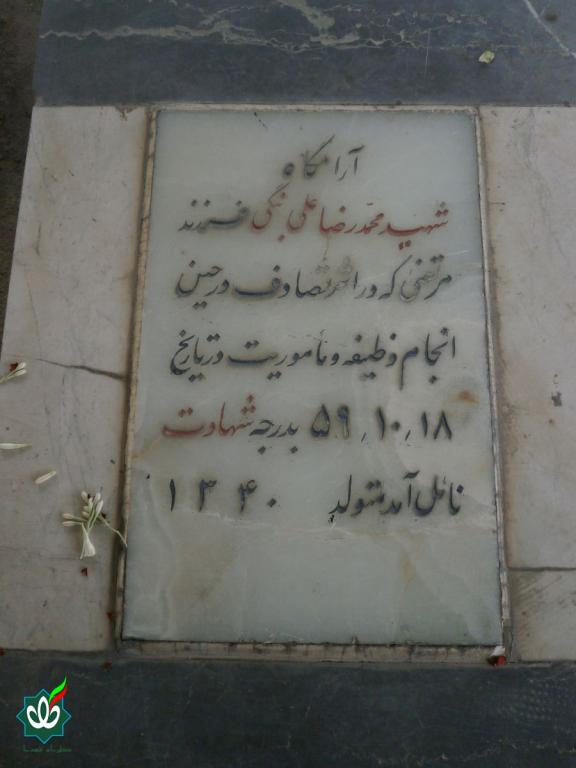 آرامگاه
شهید محمدرضا علی بنگی فرزند
مرتضی که در اثر تصادف در حین
انجام وظیفه و مأموریت در تاریخ
۱۸٫۱۰٫۵۹ بدرجه شهادت
نائل آمد متولد ۱۳۴۰